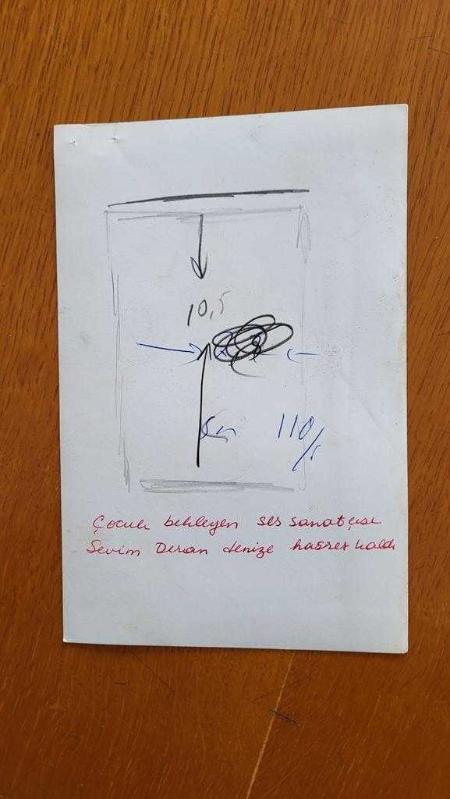 10,5
cm 110/
Çocuk bekleyen ses sanatçısı
Sevim Deran denize hasret kaldı